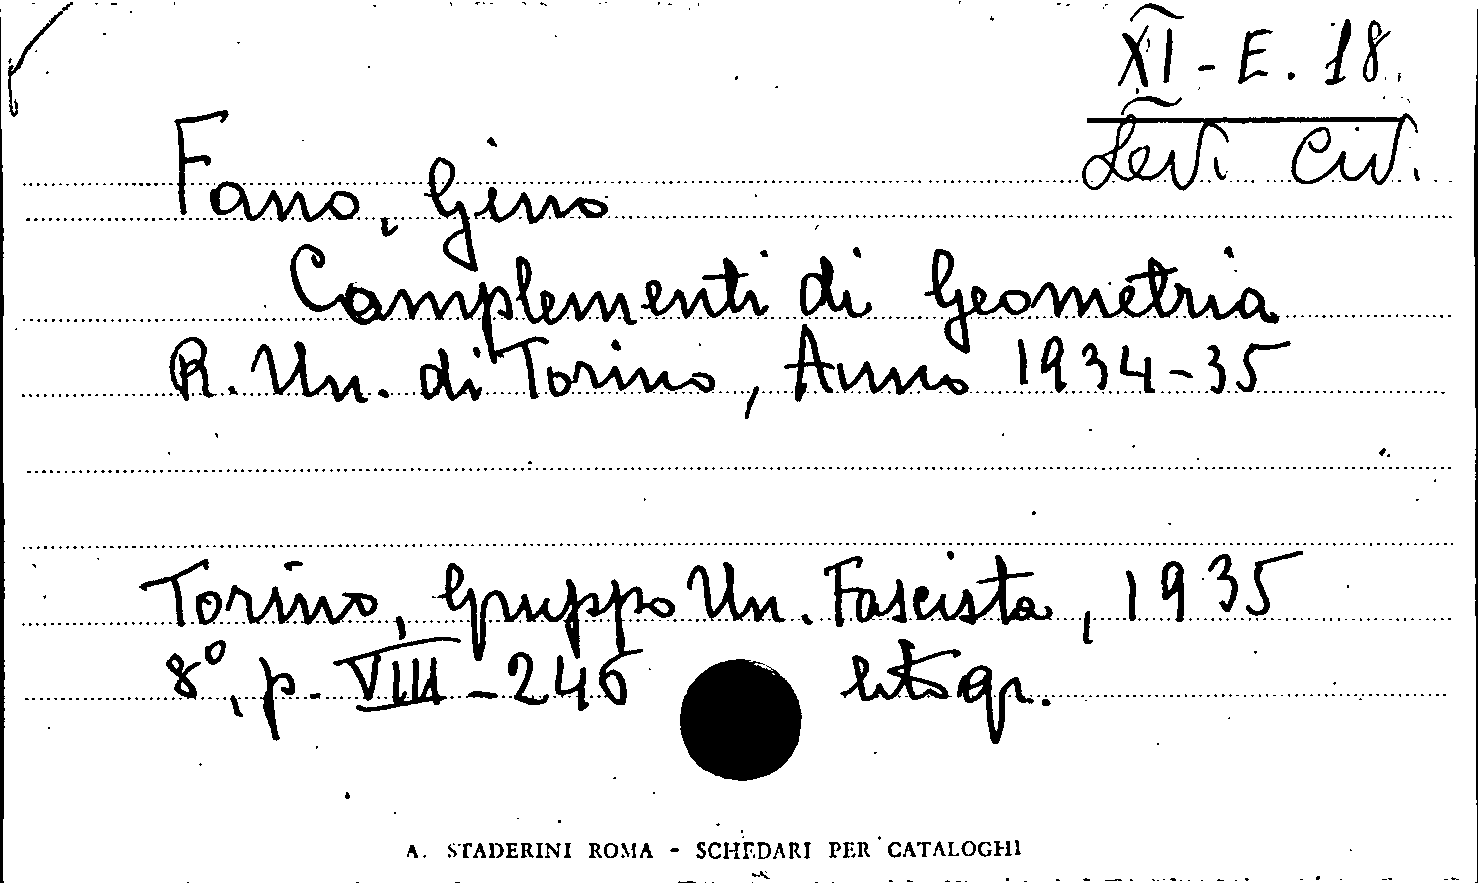 XI - E. 18
Levi Civ.
Fano, Gino
Complementi di Geometria
R. Un. di Torino, Anno 1934-35
Torino, Gruppo Un. Fascista, 1935
8°, p. VIII - 246 litogr.
A. STADERINI ROMA - SCHEDARI PER CATALOGHI